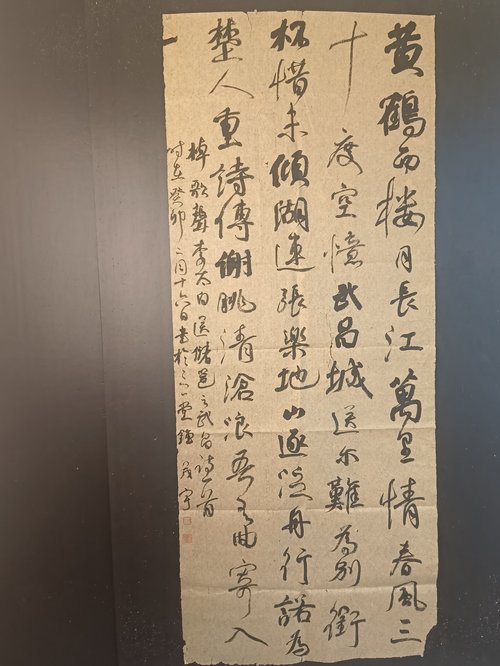 黄鶴西楼月長江萬里情春風三
十度空憶武昌城送尔難為别銜
杯惜未傾湖連張樂地山逐泛舟行諾為
楚人重詩傳謝朓清滄浪吾有曲寄入
棹歌聲李太白送儲邕之武昌詩一首
时在癸卯二月十六日書於